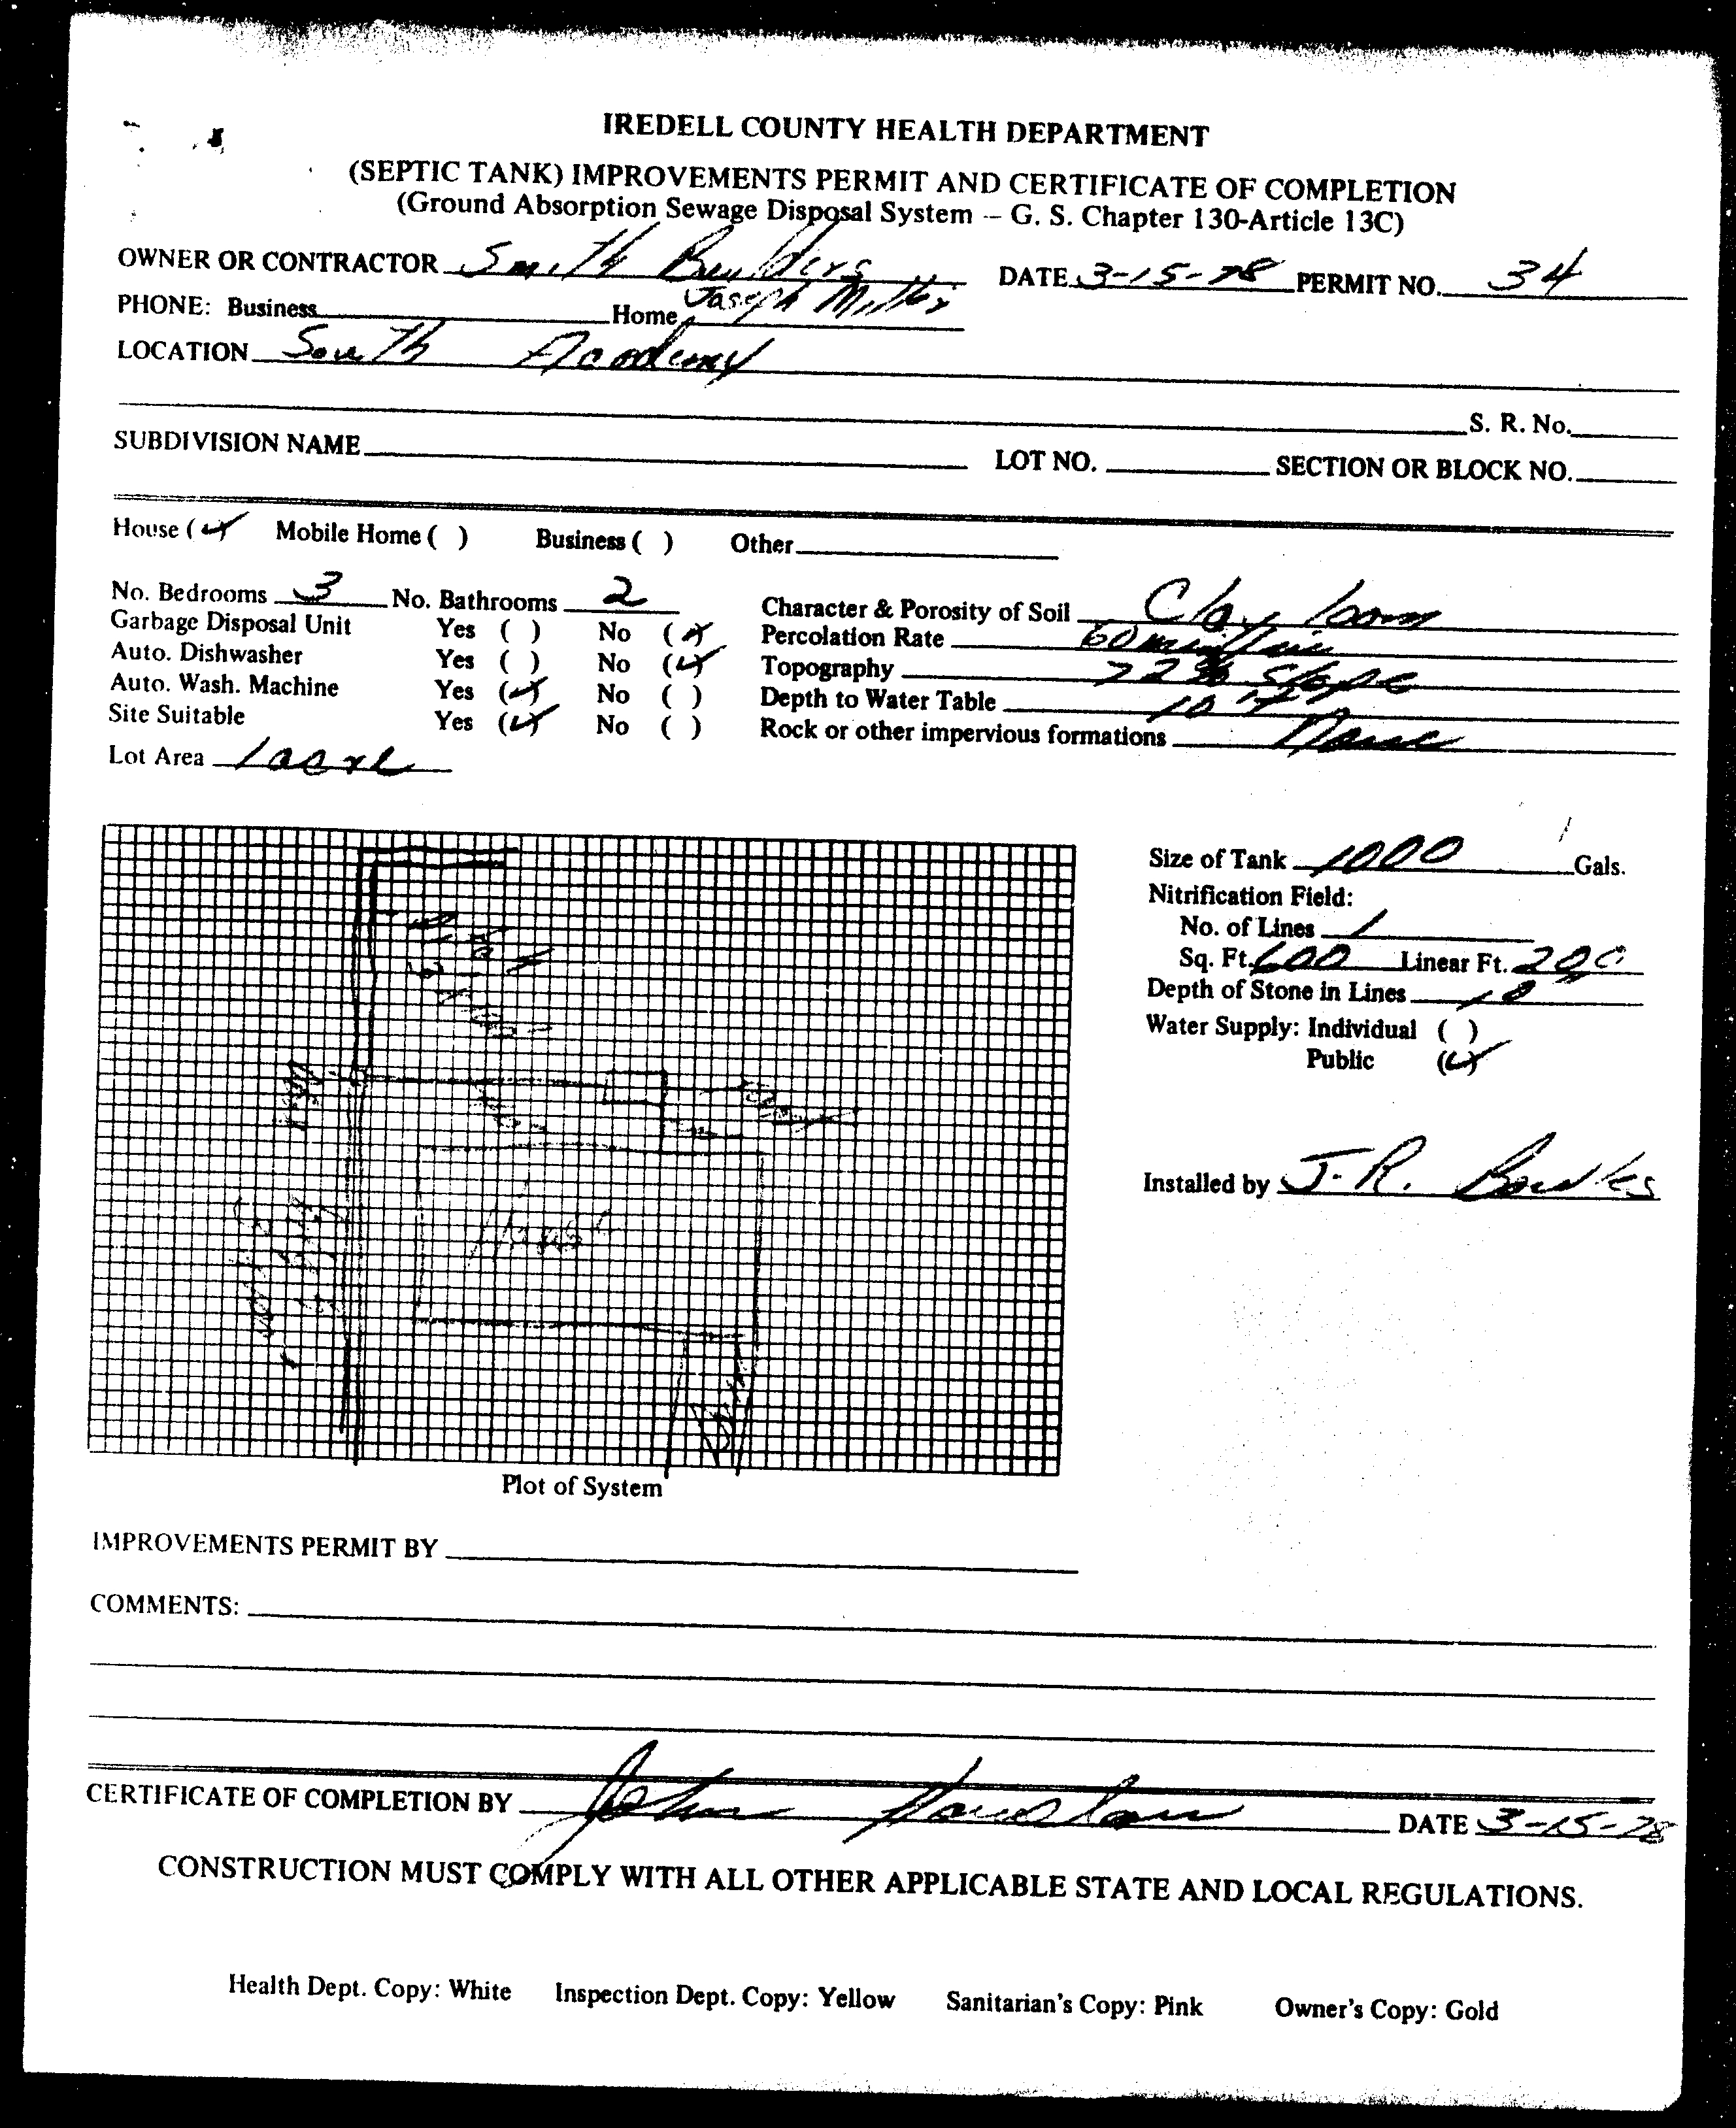 IREDELL COUNTY HEALTH DEPARTMENT
(SEPTIC TANK) IMPROVEMENTS PERMIT AND CERTIFICATE OF COMPLETION
(Ground Absorption Sewage Disposal System -- G. S. Chapter 130-Article 13C)
OWNER OR CONTRACTOR Smith Builders DATE 3-15-78 PERMIT NO. 34
PHONE: Business Home Joseph Miller
LOCATION South Academy
S. R. No.
SUBDIVISION NAME LOT NO. SECTION OR BLOCK NO.
House (✓) Mobile Home ( ) Business ( ) Other
No. Bedrooms 3 No. Bathrooms 2 Character & Porosity of Soil Clay loam
Garbage Disposal Unit Yes ( ) No (✓) Percolation Rate 60 min/
Auto. Dishwasher Yes ( ) No (✓) Topography slope
Auto. Wash. Machine Yes (✓) No ( ) Depth to Water Table 10
Site Suitable Yes (✓) No ( ) Rock or other impervious formations None
Lot Area 1 acre
Size of Tank 1000 Gals.
Nitrification Field:
No. of Lines 1
Sq. Ft. 600 Linear Ft. 200
Depth of Stone in Lines
Water Supply: Individual ( )
Public (✓)
Installed by J. R.
House
Plot of System
IMPROVEMENTS PERMIT BY
COMMENTS:
CERTIFICATE OF COMPLETION BY John DATE 3-15-78
CONSTRUCTION MUST COMPLY WITH ALL OTHER APPLICABLE STATE AND LOCAL REGULATIONS.
Health Dept. Copy: White Inspection Dept. Copy: Yellow Sanitarian's Copy: Pink Owner's Copy: Gold